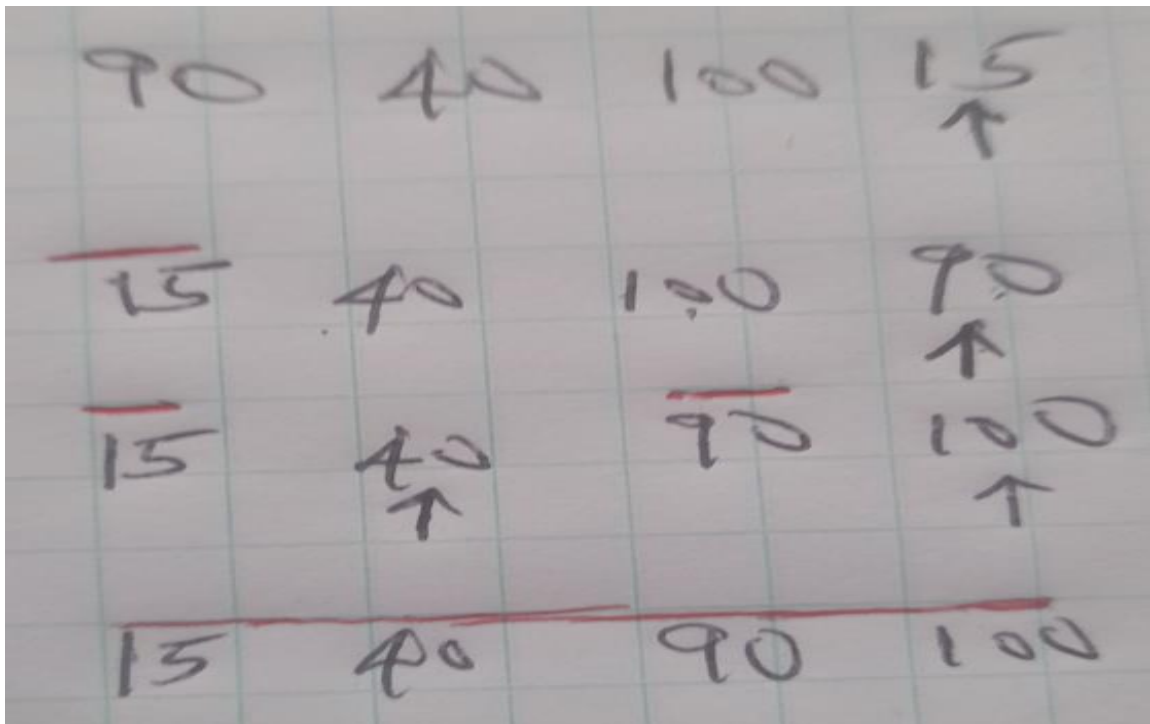 90 40 100 15
↑
15 40 100 90
↑
15 40 90 100
↑ ↑
15 40 90 100